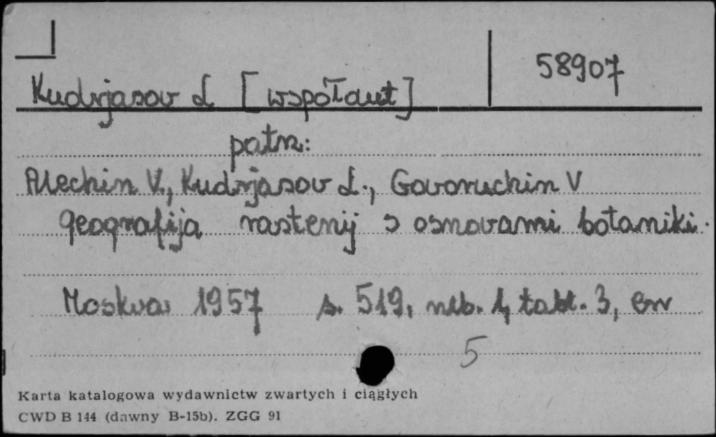 58907
Kudrjasov L [współaut]
patrz:
Alechin V., Kudrjasov L., Govoruchin V
Geografija rastenij s osnovami botaniki.
Moskva 1957 s. 519, nlb. 1, tabl. 3,
5
Karta katalogowa wydawnictw zwartych i ciągłych
CWD B 144 (dawny B-15b). ZGG 91